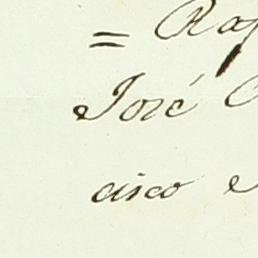 = Raf
José
cisco e